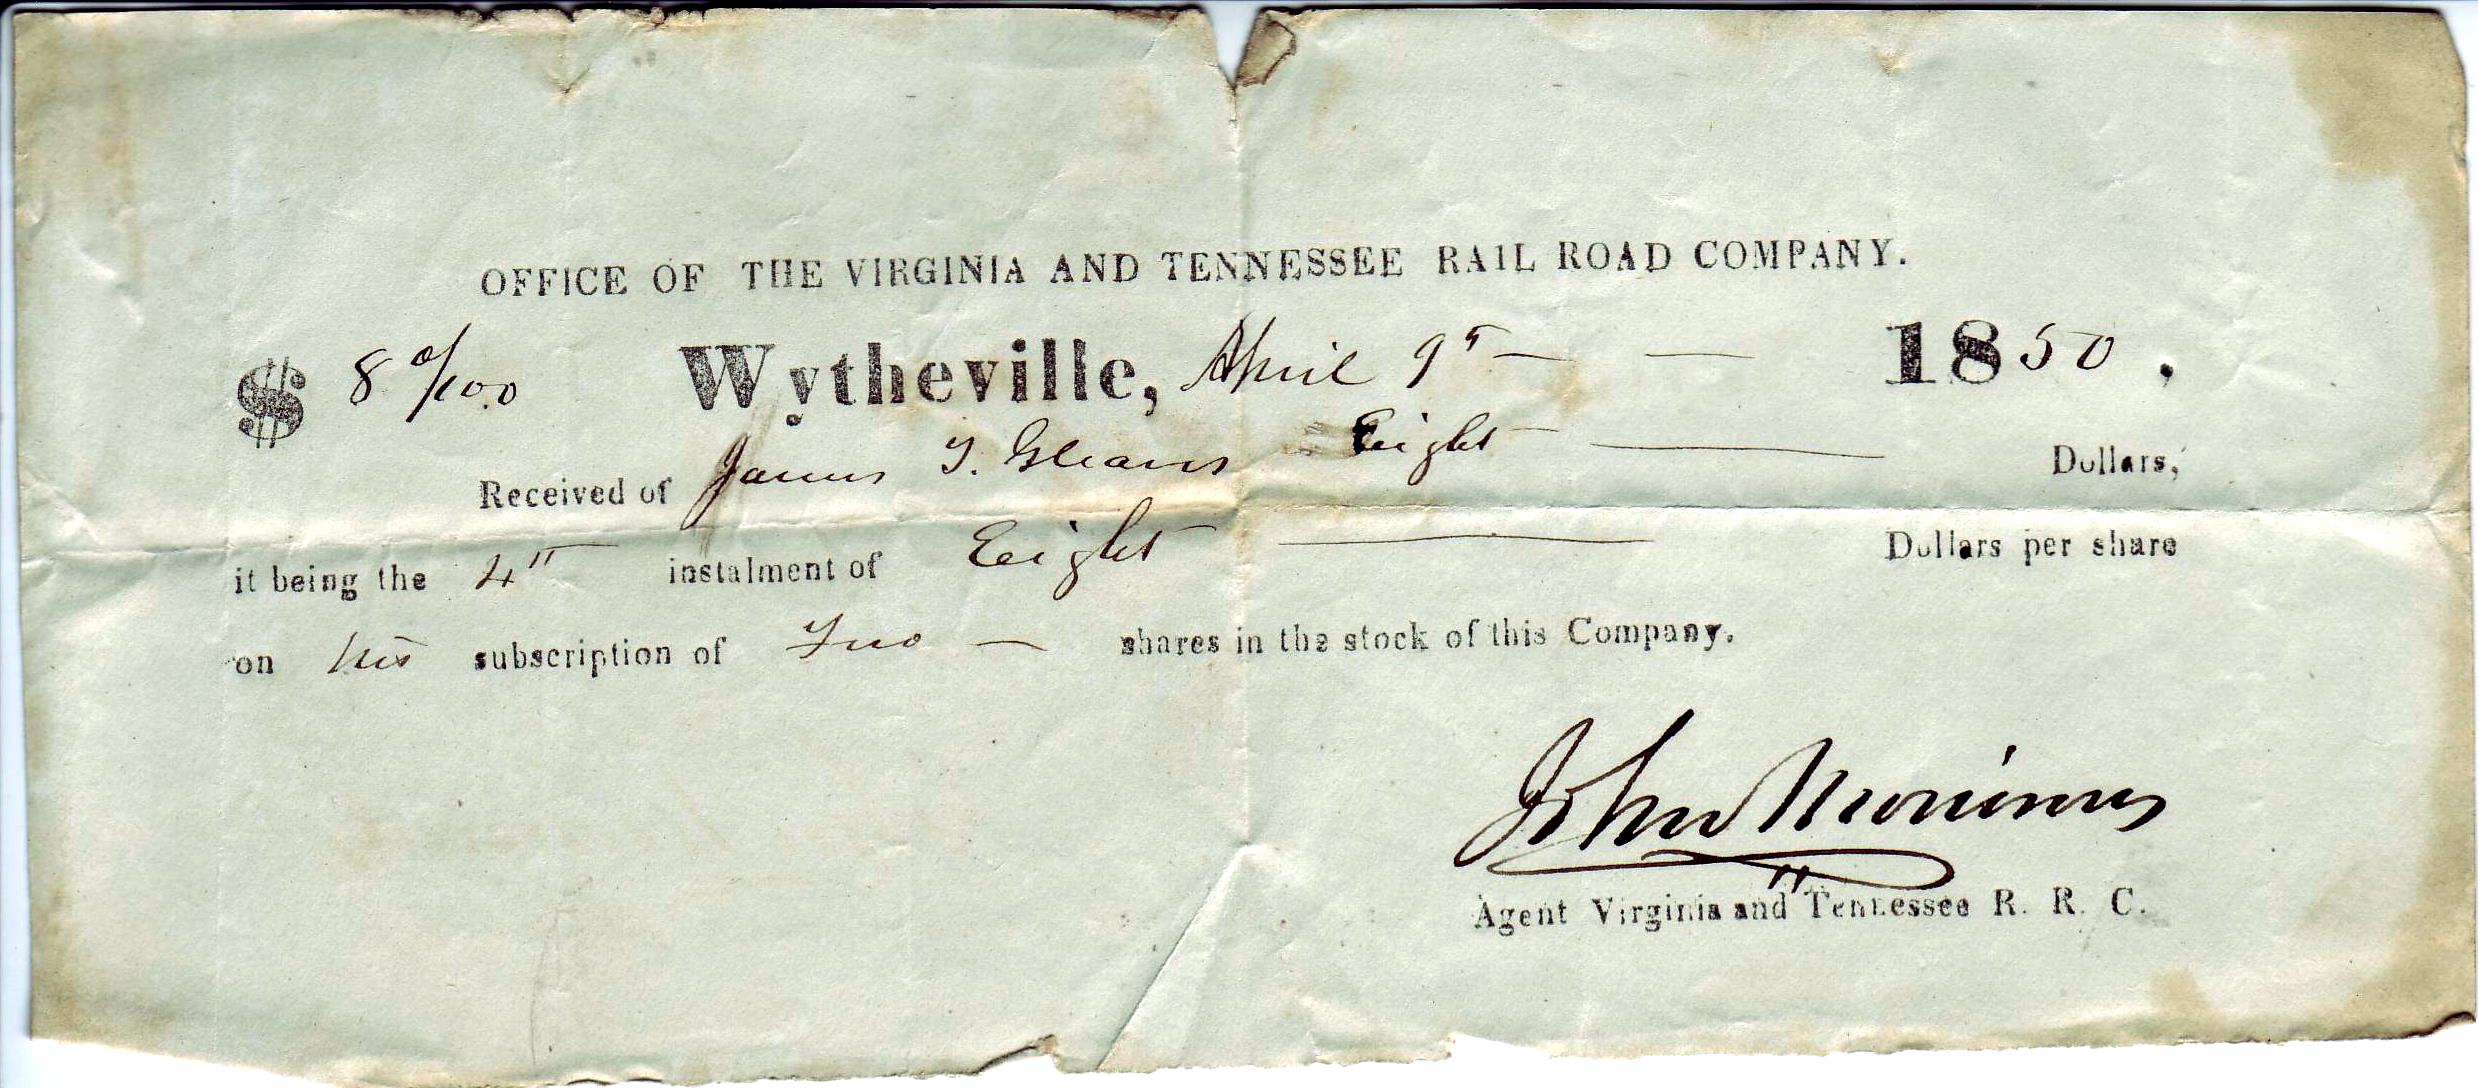 OFFICE OF THE VIRGINIA AND TENNESSEE RAIL ROAD COMPANY.
$ 8 0/100 Wytheville, April 9" — — 1850.
Received of James T. Gleaves Eight — Dollars,
it being the 4" instalment of Eight — Dollars per share
on his subscription of Two — shares in the stock of this Company.
John
Agent Virginia and Tennessee R. R. C.